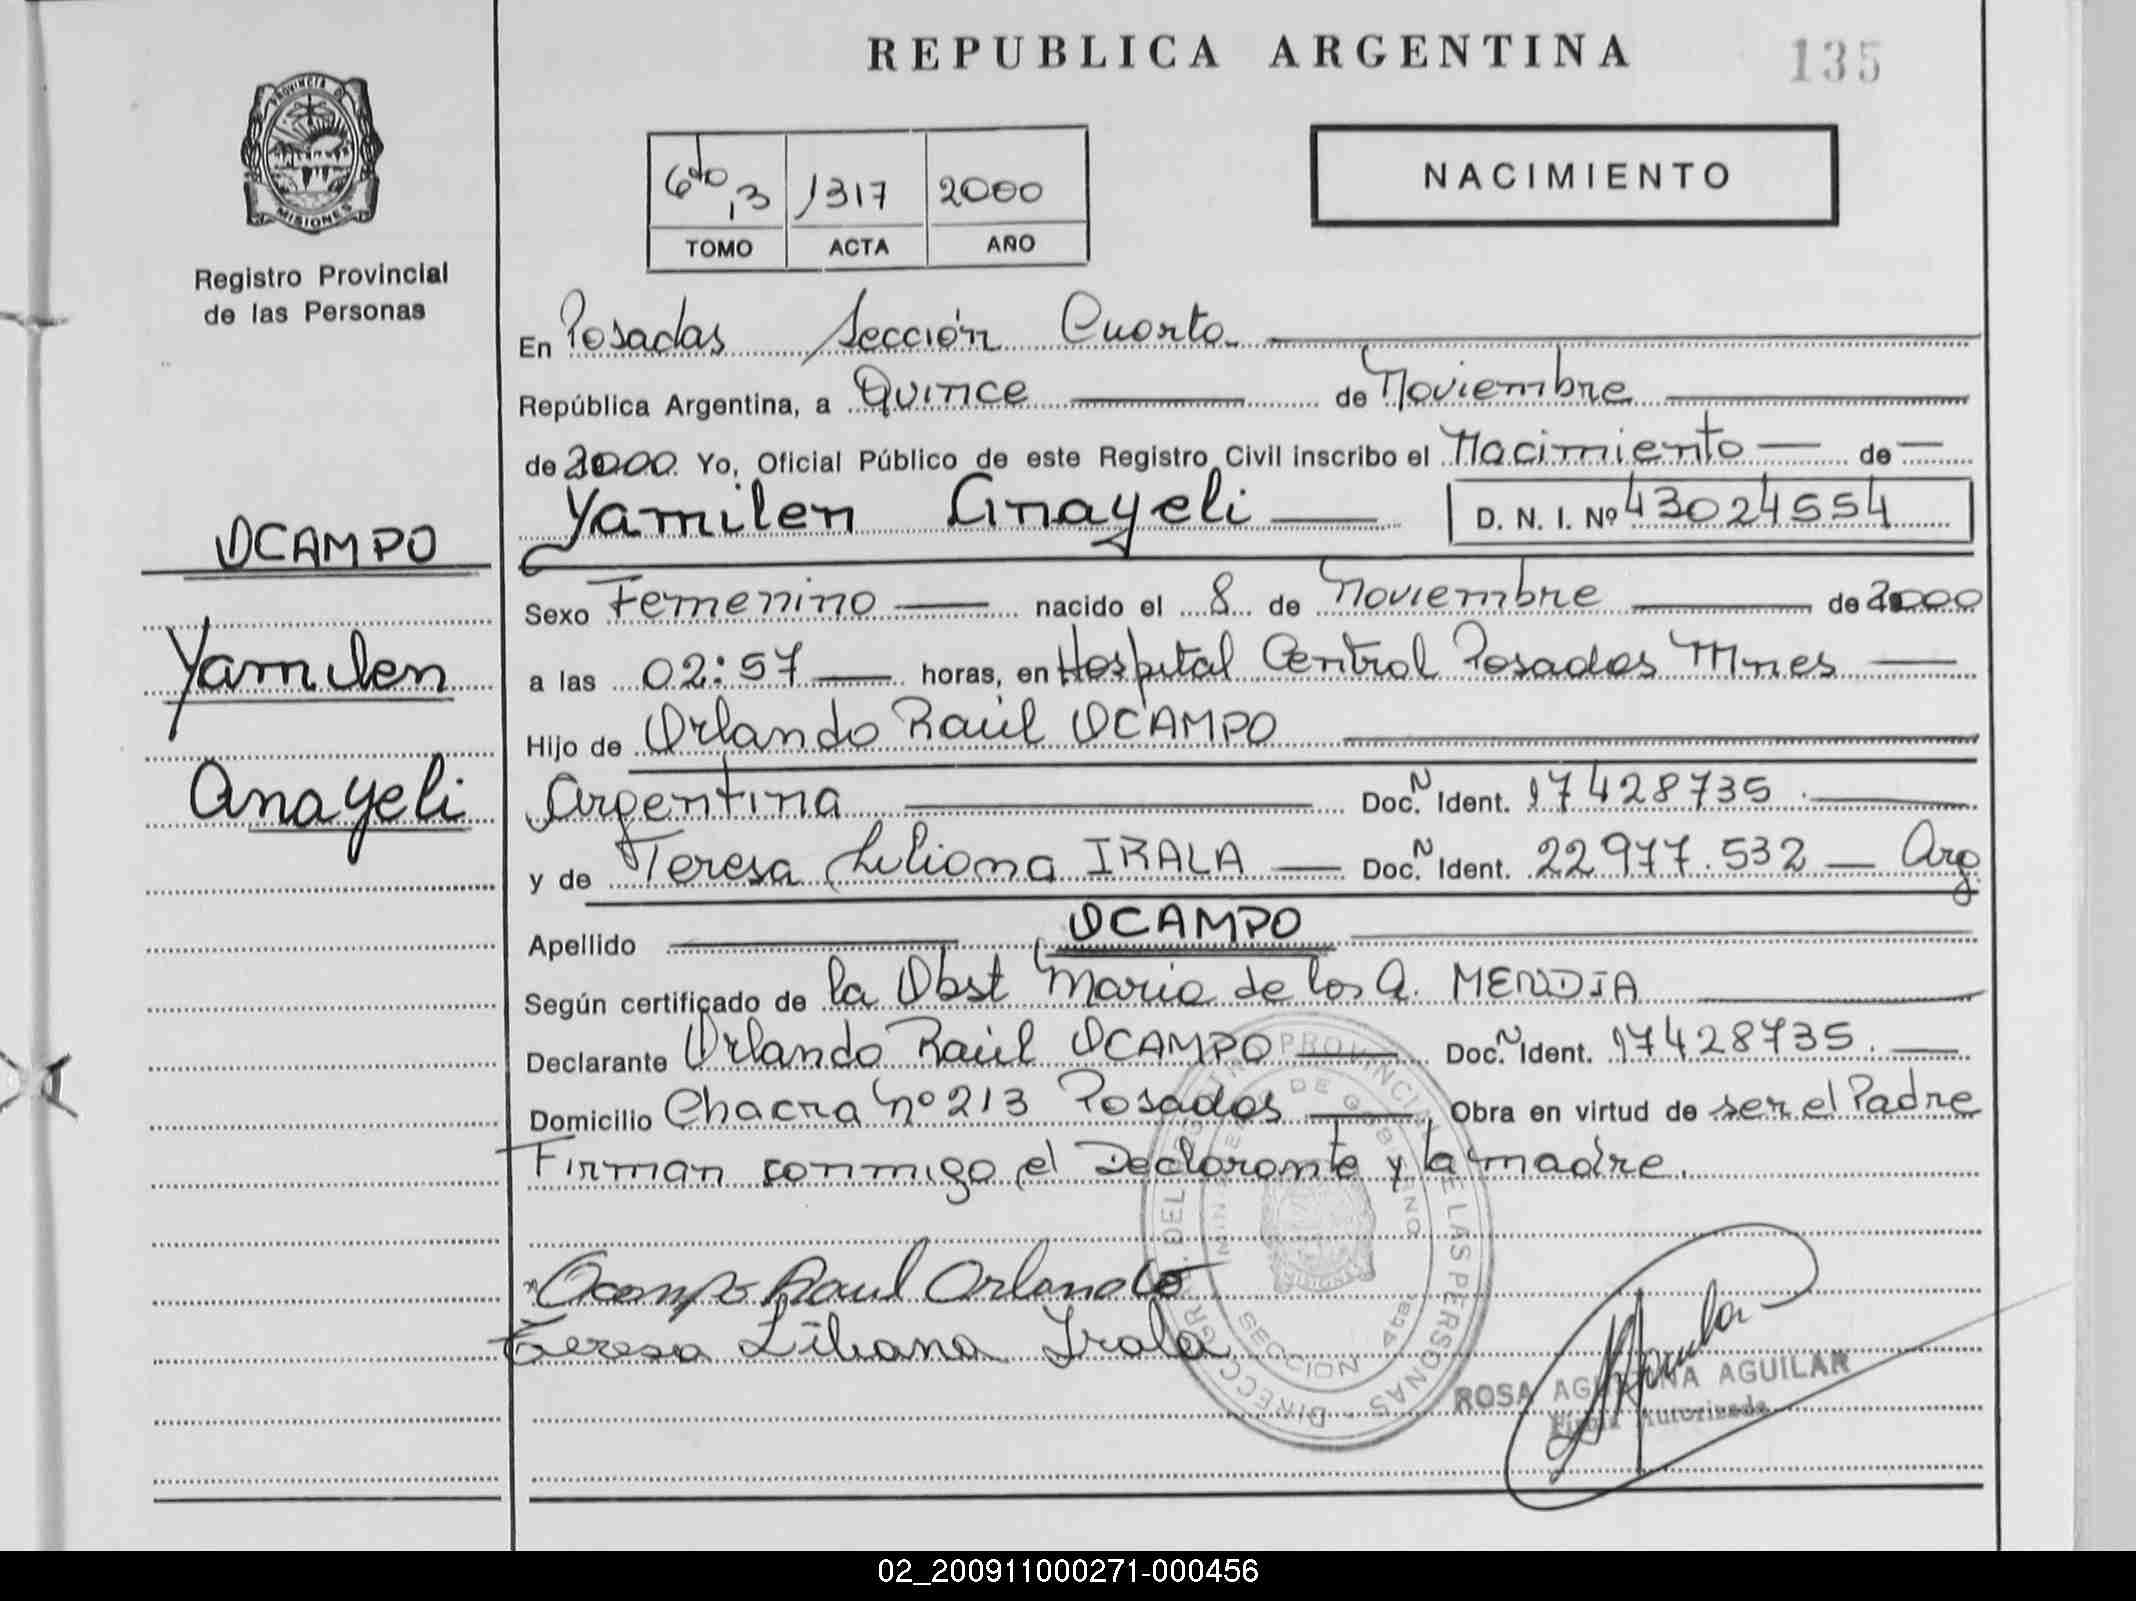 REPUBLICA ARGENTINA
135
PROVINCIA DE
MISIONES
Registro Provincial
de las Personas
6to 13 1317 2000
TOMO ACTA AÑO
NACIMIENTO
En Posadas Sección Cuarta
República Argentina, a Quince de Noviembre
de 2000. Yo, Oficial Público de este Registro Civil inscribo el Nacimiento de
Yamilen Anayeli D. N. I. Nº 43024554
OCAMPO
Yamilen
Anayeli
Sexo Femenino nacido el 8 de Noviembre de 2000
a las 02:57 horas, en Hospital Central Posadas Mnes
Hijo de Orlando Raúl OCAMPO
Argentina Doc. N Ident. 17428735.
y de Teresa Liliana IRALA Doc. N Ident. 22977.532 Arg
Apellido OCAMPO
Según certificado de la Obst María de los A. MENDIA
Declarante Orlando Raúl OCAMPO Doc. N Ident. 17428735.
Domicilio Chacra nº 213 Posadas Obra en virtud de ser el Padre
Firman conmigo el Declarante y la madre.
Ocampo Raul Orlando
Teresa Liliana Irala
DIRECC. GRAL. DEL REGISTRO PROVINCIAL DE LAS PERSONAS
MINISTERIO DE GOBIERNO
MISIONES
SECCION 4ta.
ROSA AGUSTINA AGUILAR
Firma Autorizada
02_200911000271-000456